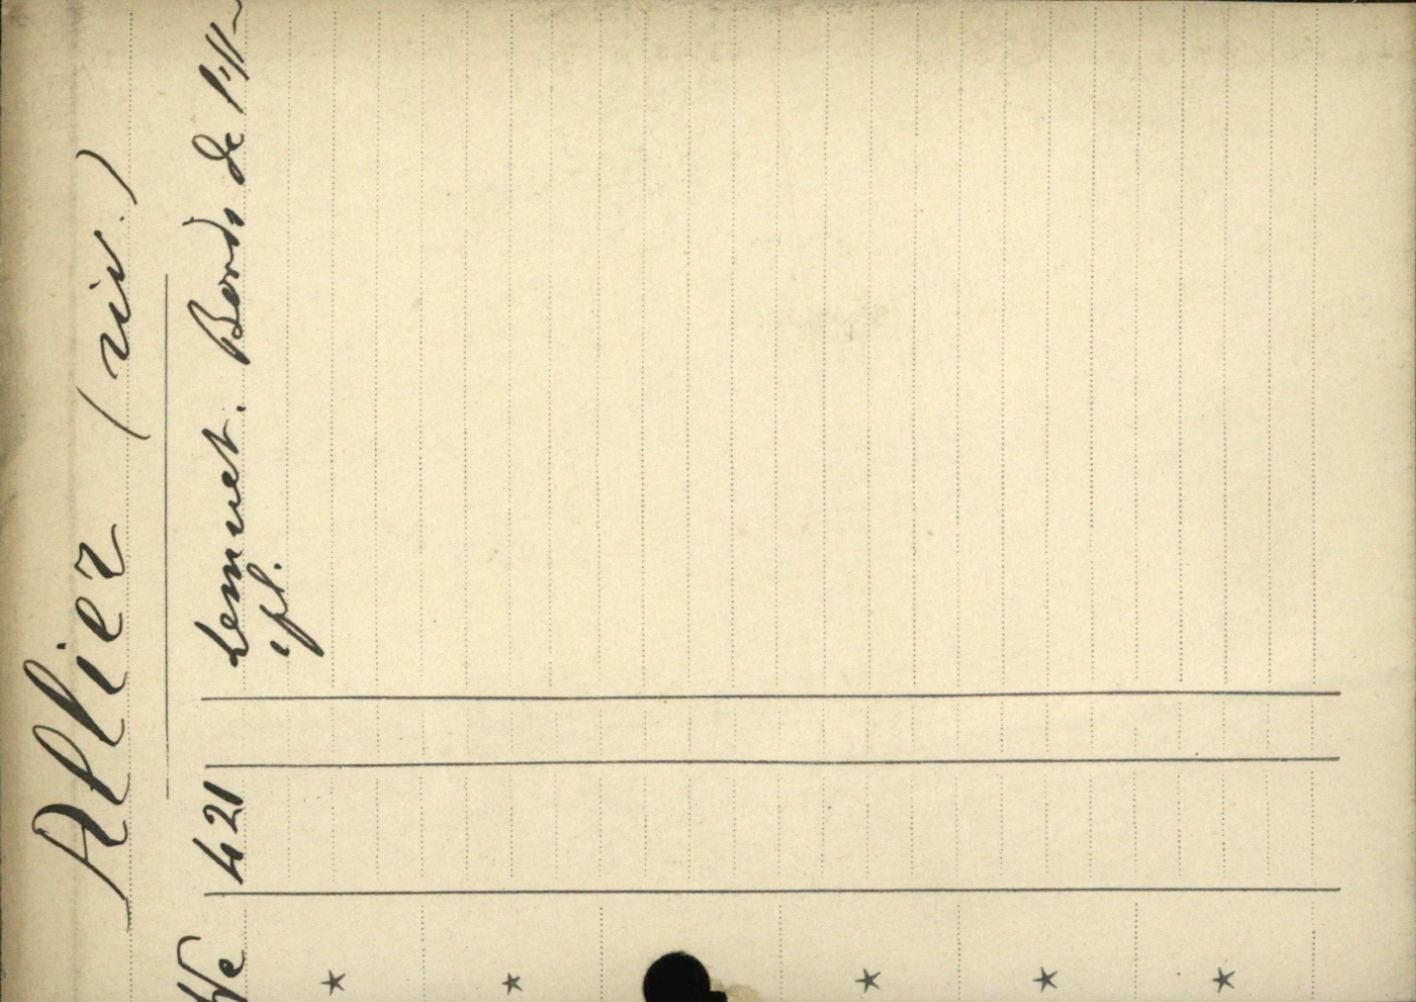 Allier (riv.)
Ve 421 Lemuet. Bords de l'All
1 pl.